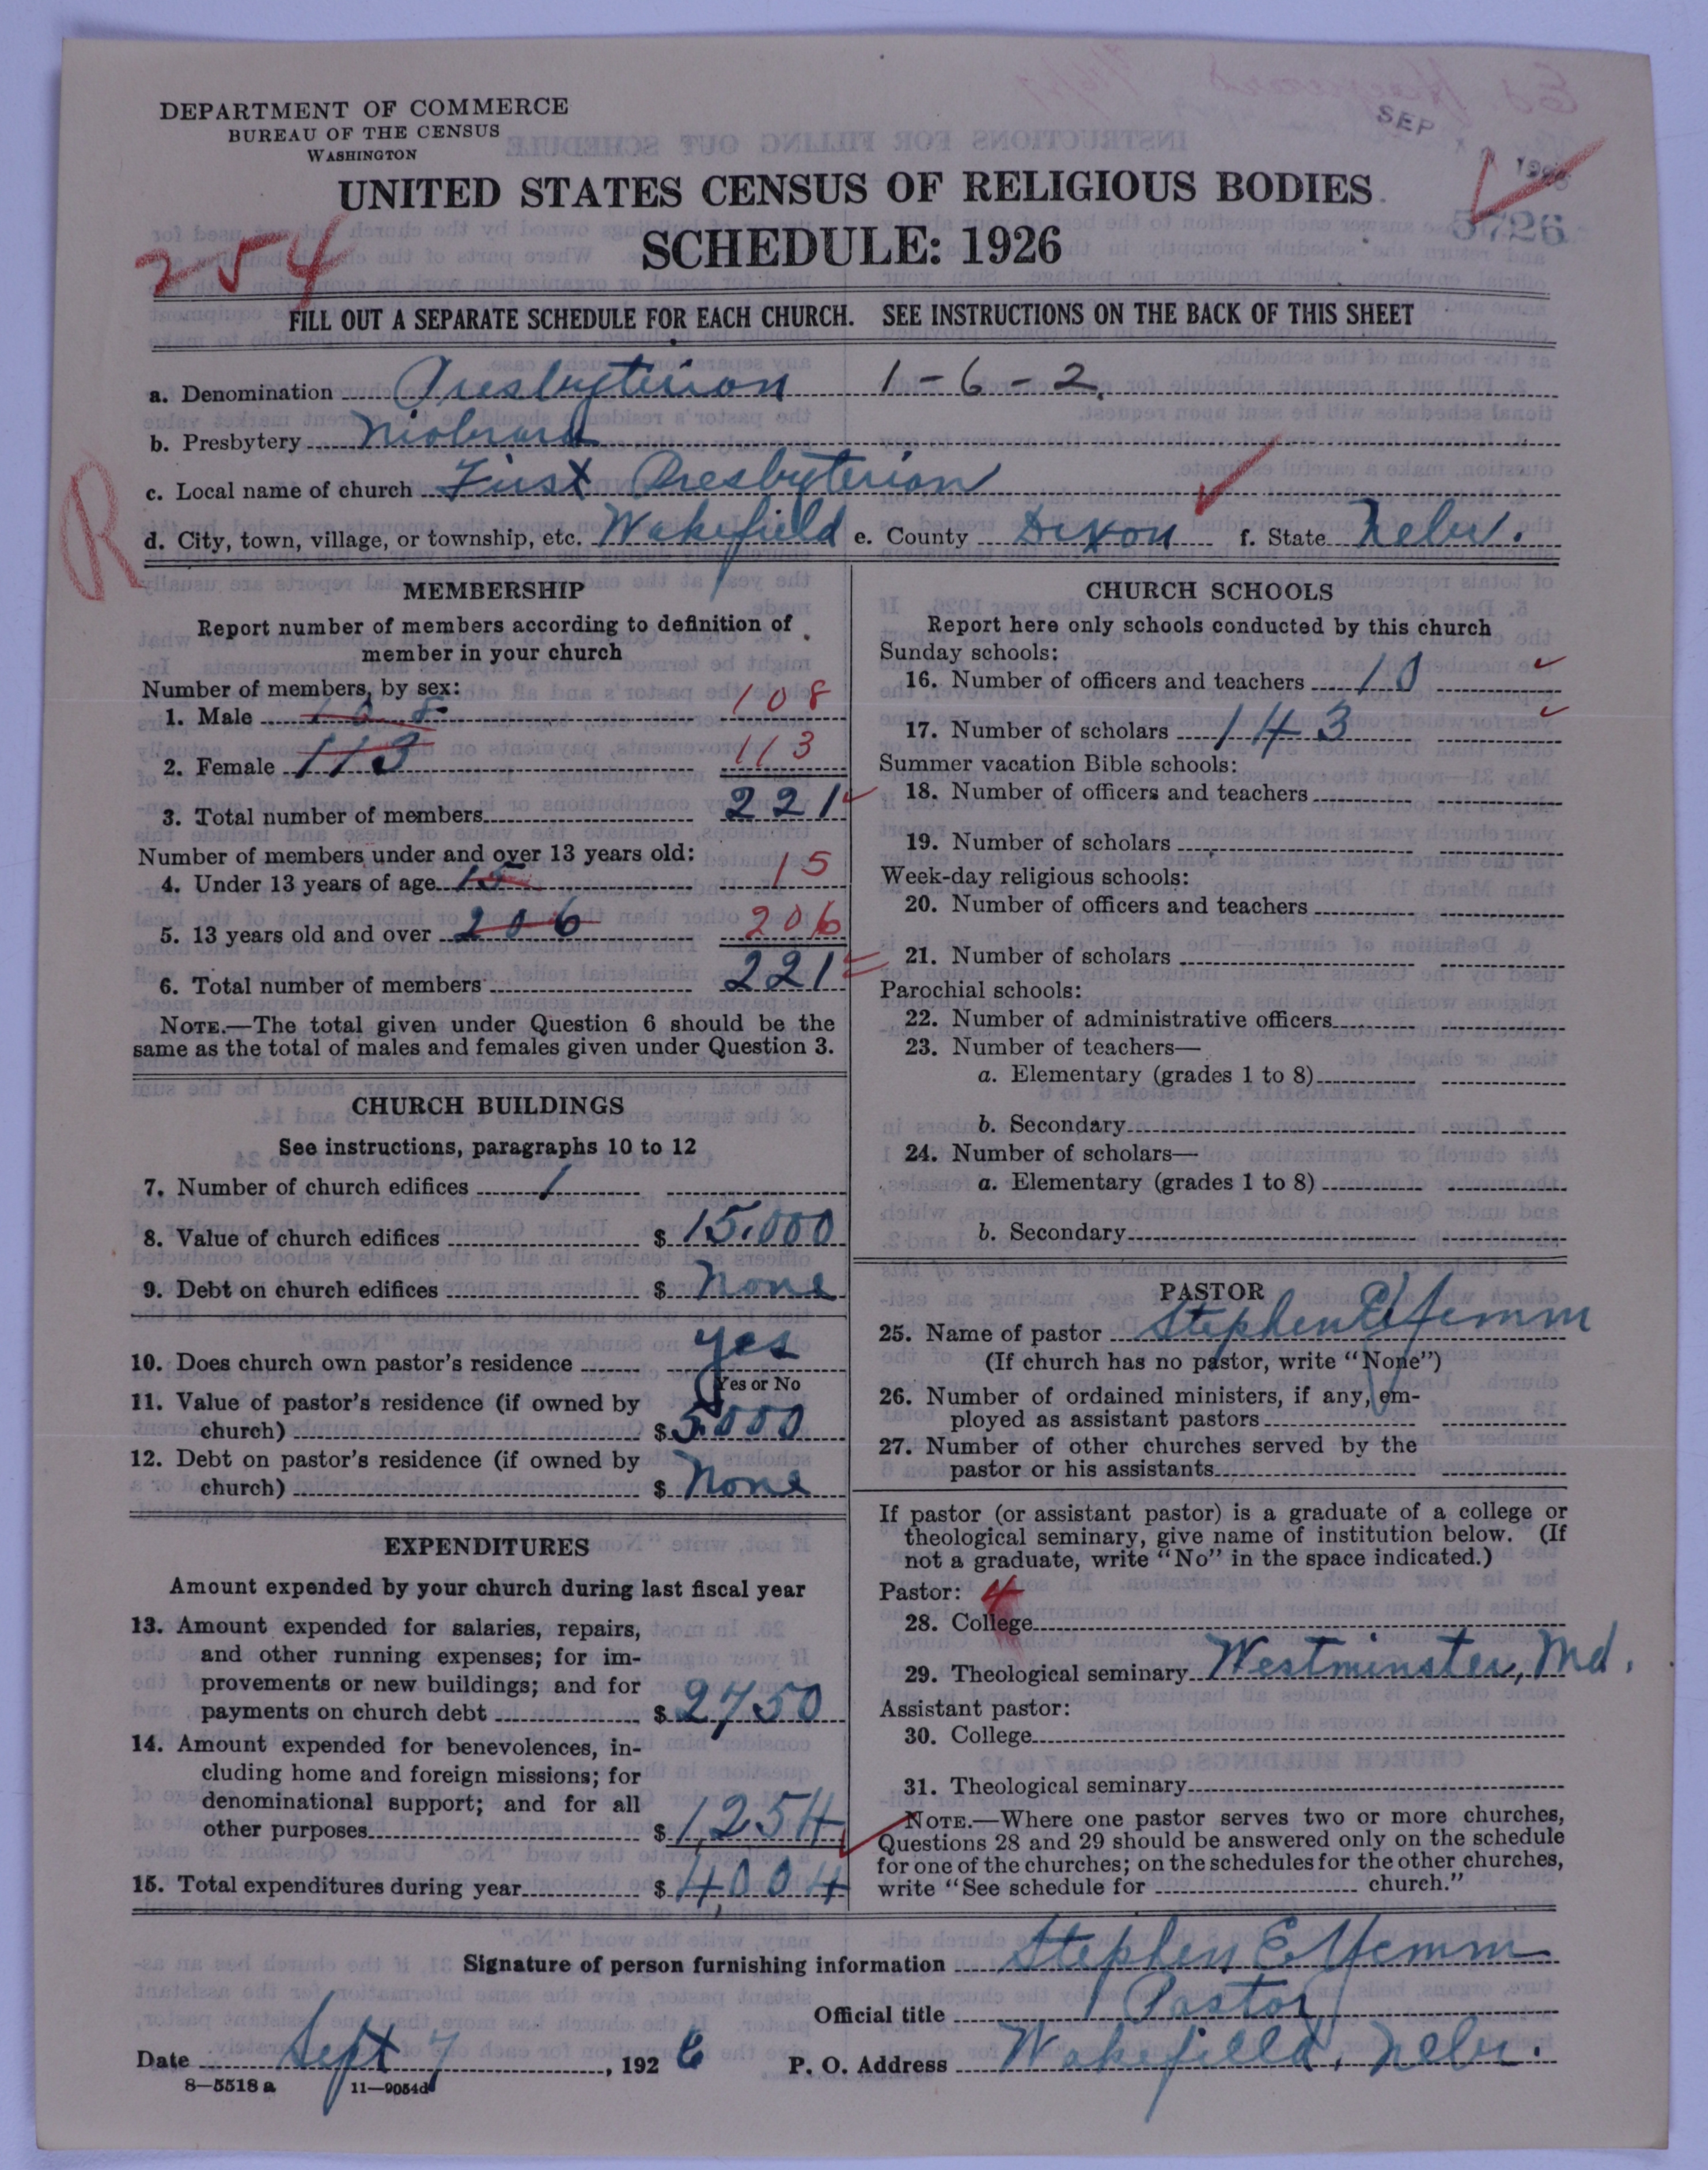 DEPARTMENT OF COMMERCE
BUREAU OF THE CENSUS
WASHINGTON
SEP
UNITED STATES CENSUS OF RELIGIOUS BODIES
5726
254
SCHEDULE: 1926
FILL OUT A SEPARATE SCHEDULE FOR EACH CHURCH. SEE INSTRUCTIONS ON THE BACK OF THIS SHEET
a. Denomination Presbyterian 1-6-2
b. Presbytery Niobrara
R
c. Local name of church First Presbyterian
d. City, town, village, or township, etc. Wakefield e. County Dixon f. State Nebr.
MEMBERSHIP
Report number of members according to definition of
member in your church
Number of members, by sex:
1. Male 108 108
2. Female 113 113
3. Total number of members 221
Number of members under and over 13 years old:
4. Under 13 years of age 15 15
5. 13 years old and over 206 206
6. Total number of members 221
NOTE.—The total given under Question 6 should be the
same as the total of males and females given under Question 3.
CHURCH BUILDINGS
See instructions, paragraphs 10 to 12
7. Number of church edifices 1
8. Value of church edifices $ 15,000
9. Debt on church edifices $ None
10. Does church own pastor's residence yes
Yes or No
11. Value of pastor's residence (if owned by
church) $ 5000
12. Debt on pastor's residence (if owned by
church) $ None
EXPENDITURES
Amount expended by your church during last fiscal year
13. Amount expended for salaries, repairs,
and other running expenses; for im-
provements or new buildings; and for
payments on church debt $ 2750
14. Amount expended for benevolences, in-
cluding home and foreign missions; for
denominational support; and for all
other purposes $ 1254
15. Total expenditures during year $ 4,004
CHURCH SCHOOLS
Report here only schools conducted by this church
Sunday schools:
16. Number of officers and teachers 10
17. Number of scholars 143
Summer vacation Bible schools:
18. Number of officers and teachers
19. Number of scholars
Week-day religious schools:
20. Number of officers and teachers
21. Number of scholars
Parochial schools:
22. Number of administrative officers
23. Number of teachers—
a. Elementary (grades 1 to 8)
b. Secondary
24. Number of scholars—
a. Elementary (grades 1 to 8)
b. Secondary
PASTOR
25. Name of pastor Stephen E Yemm
(If church has no pastor, write "None")
26. Number of ordained ministers, if any, em-
ployed as assistant pastors
27. Number of other churches served by the
pastor or his assistants
If pastor (or assistant pastor) is a graduate of a college or
theological seminary, give name of institution below. (If
not a graduate, write "No" in the space indicated.)
Pastor: 4
28. College
29. Theological seminary Westminster, Md.
Assistant pastor:
30. College
31. Theological seminary
NOTE.—Where one pastor serves two or more churches,
Questions 28 and 29 should be answered only on the schedule
for one of the churches; on the schedules for the other churches,
write "See schedule for church."
Signature of person furnishing information Stephen E Yemm
Official title Pastor
Date Sept 7, 1926 P. O. Address Wakefield, Nebr.
8—5518 a 11—9054d